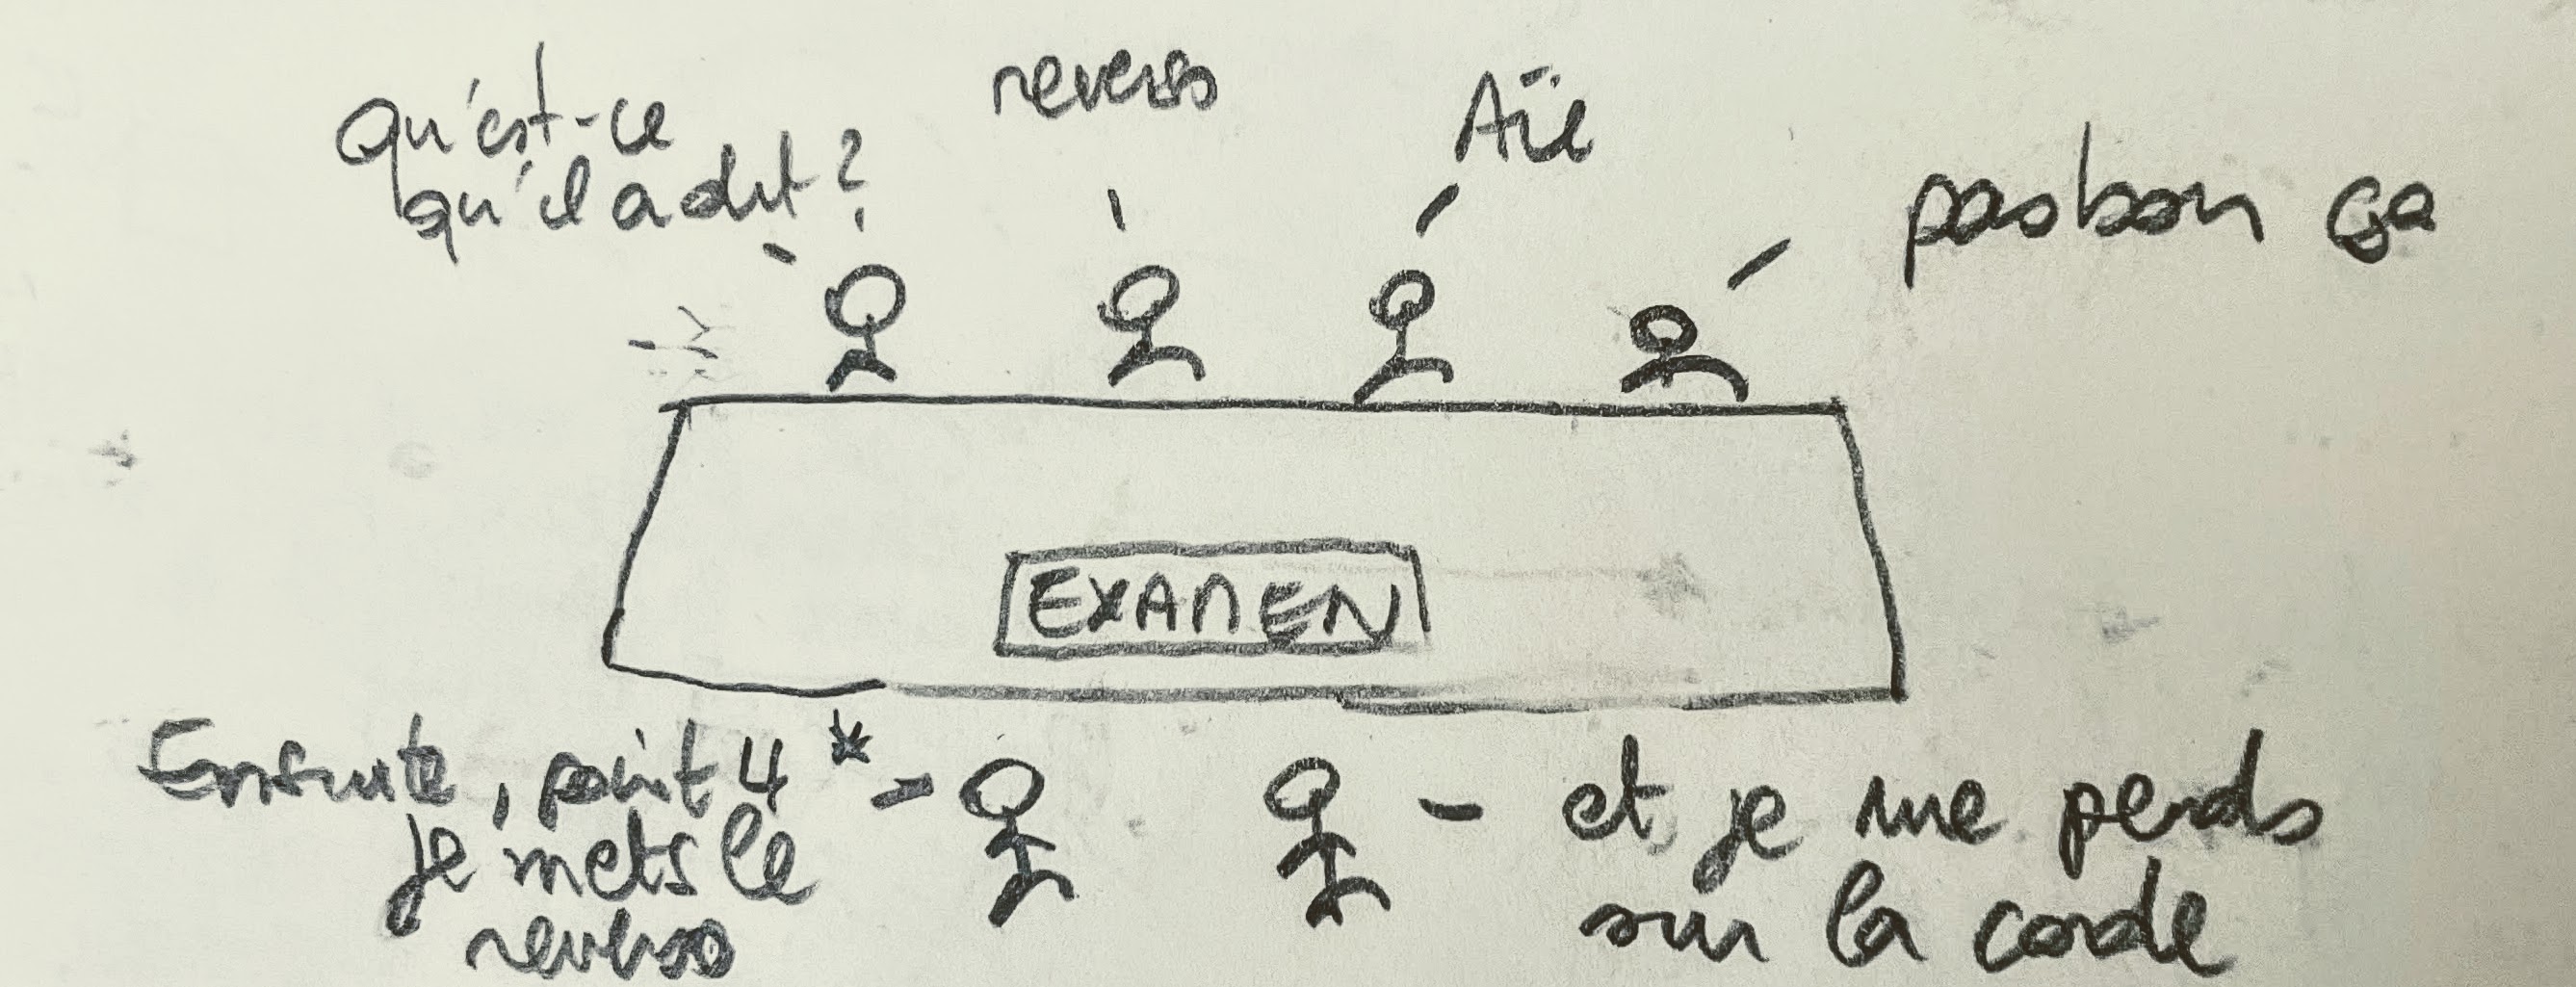 Qu'est-ce
qu'il a dit ?
reverso
Aïe
pas bon ça
EXAMEN
Ensuite, point 4 *
je mets le
reverso
et je me perds
sur la corde